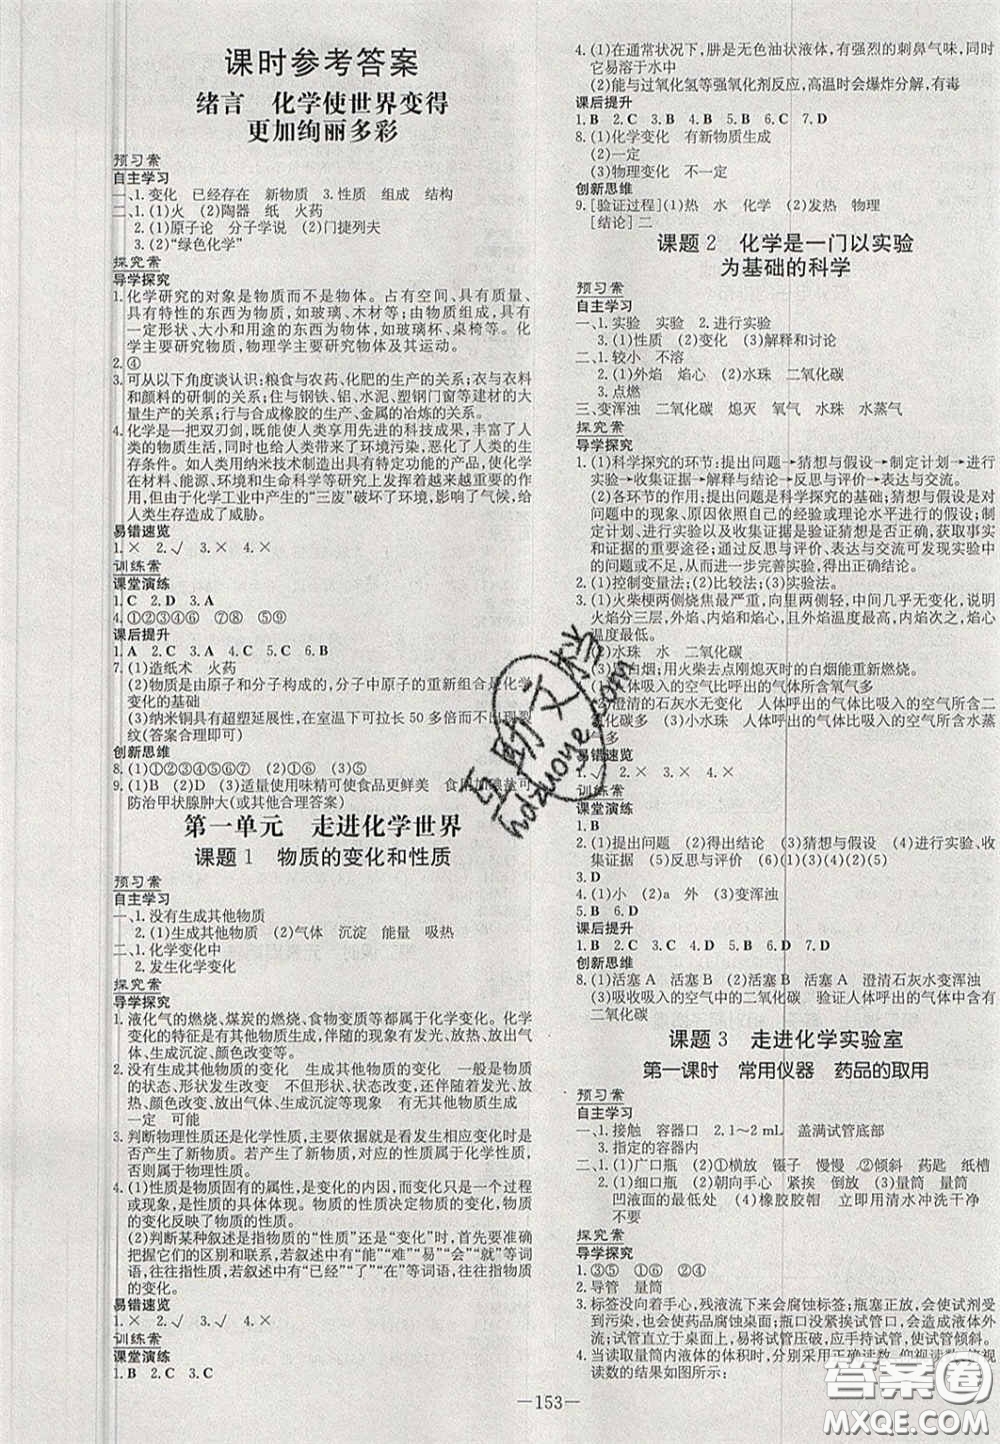 课时参考答案
绪言 化学使世界变得
更加绚丽多彩
预习案
自主学习
一、1.变化 已经存在 新物质 3.性质 组成 结构
二、1.(1)火 (2)陶器 纸 火药
2.(1)原子论 分子学说 (2)门捷列夫
3.(2)“绿色化学”
探究案
导学探究
1.化学研究的对象是物质而不是物体。占有空间、具有质量、
具有特性的东西为物质,如玻璃、木材等;由物质组成,具有
一定形状、大小和用途的东西为物体,如玻璃杯、桌椅等。化
学主要研究物质,物理学主要研究物体及其运动。
2.④
3.可从以下角度谈认识:粮食与农药、化肥的生产的关系;衣与衣料
和颜料的研制的关系;住与钢铁、铝、水泥、塑钢门窗等建材的大
量生产的关系;行与合成橡胶的生产、金属的冶炼的关系。
4.化学是一把双刃剑,既能给人类享用先进的科技成果,丰富了人
类的物质生活,同时也给人类带来了环境污染,恶化了人类的生
存条件。如人类用纳米技术制造出具有特定功能的产品,使化学
在材料、能源、环境和生命科学等研究上发挥着越来越重要的作
用;但由于化学工业中产生的“三废”破坏了环境,影响了气候,给
人类生存造成了威胁。
易错速览
1.× 2.√ 3.× 4.×
训练案
课堂演练
1.C 2.D 3.A
4.①②③④⑥ ⑦⑧ ⑤⑨
课后提升
1.A 2.C 3.C 4.C 5.C 6.B
7.(1)造纸术 火药
(2)物质是由原子和分子构成的,分子中原子的重新组合是化学
变化的基础
(3)纳米铜具有超塑延展性,在室温下可拉长50多倍而不出现裂
纹(答案合理即可)
创新思维
8.(1)①③④⑥ (2)①②⑥ (3)⑤
9.(1)B (2)D (3)适量使用味精可使食品更鲜美 食用加碘盐可
防治甲状腺肿大(或其他合理答案)
第一单元 走进化学世界
课题1 物质的变化和性质
预习案
自主学习
一、1.没有生成其他物质
2.(1)生成其他物质 (2)气体 沉淀 能量 吸热
二、1.化学变化中
2.发生化学变化
探究案
导学探究
1.液化气的燃烧、煤炭的燃烧、食物变质等都属于化学变化。化学
变化的特征是有其他物质生成,伴随的现象有发光、放热、放出气
体、生成沉淀、颜色改变等。
2.没有生成其他物质 有其他物质生成 一般是物质
的状态、形状发生改变 不但形状、状态改变,还伴随着发光、放
热、颜色改变、放出气体、生成沉淀等现象 有没有其他物质生成
一定 可能
3.判断物理性质还是化学性质,主要看这种性质在发生相应变化时是
否产生了新物质。如果产生了新物质,对应的性质是化学性质,
否则属于物理性质。
4.(1)性质是物质固有的属性,是变化的内因,而变化只是一个过程
或现象,是性质的具体体现。物质的性质决定物质的变化,物质
的变化反映了物质的性质。
(2)判断某种叙述是指物质的“性质”还是“变化”时,首先要准确
把握它们的区别和联系,若叙述中有“能”“难”“易”“会”“就”等词
语,往往指性质;若叙述中有“已经”“了”“在”等词语,往往指物质
的变化。
易错速览
1.× 2.√ 3.√ 4.×
训练案
课堂演练
1.B 2.C 3.C
4.(1)在通常状况下,肼是无色油状液体,有强烈的刺鼻气味,同时
它易溶于水中
(2)能与过氧化氢等强氧化剂反应,高温时会爆炸分解,有毒
课后提升
1.B 2.C 3.D 4.B 5.C 6.C 7.D
8.(1)化学变化 有新物质生成
(2)一定
(3)物理变化 不一定
创新思维
9.[验证过程](1)热 水 化学 (2)发热 物理
[结论]二
课题2 化学是一门以实验
为基础的科学
预习案
自主学习
一、1.实验 实验 2.进行实验
3.(1)性质 (2)变化 (3)解释和讨论
二、1.比较小 不溶
2.(1)外焰 焰心 (2)水珠 二氧化碳
3.点燃
三、变浑浊 二氧化碳 熄灭 氧气 水珠 水蒸气
探究案
导学探究
1.(1)科学探究的环节:提出问题→猜想与假设→制定计划→进行
实验→收集证据→解释与结论→反思与评价→表达与交流。
(2)各环节的作用:提出问题是科学探究的基础;猜想与假设是对
问题中的现象、原因依照自己的经验或理论水平进行的假设;制
定计划、进行实验以及收集证据是验证猜想是否正确、获取事实
和证据的重要途径;通过反思与评价、表达与交流可发现实验中
的问题或不足,从而进一步完善实验,得出正确的结论。
2.(1)控制变量法;(2)比较法;(3)实验法。
3.(1)火柴梗两侧烧焦最严重,向里两侧轻,中间几乎无变化,说明
火焰分三层,外焰、内焰和焰心,且外焰温度最高,内焰其次,焰心
温度最低。
(2)水珠 水 二氧化碳
(3)白烟;用火柴去点刚熄灭时的白烟能重新燃烧。
(1)人体吸入的空气比呼出的气体所含氧气多
(2)澄清的石灰水无变化 人体呼出的气体比吸入的空气所含二
氧化碳多 (3)小水珠 人体呼出的气体比吸入的空气所含水蒸
气多
易错速览
1.√ 2.× 3.× 4.×
训练案
课堂演练
1.B
2.(1)提出问题 (2)得出结论 (3)猜想与假设 (4)进行实验、收
集证据 (5)反思与评价 (6)(1)(3)(4)(2)(5)
3.D
4.(1)小 (2)a 外 (3)变浑浊
5.B 6.D
课后提升
1.B 2.C 3.C 4.D 5.D 6.D 7.D
创新思维
8.(1)活塞A 活塞B (2)活塞B 活塞A 澄清石灰水变浑浊
(3)吸收吸入的空气中的二氧化碳 验证人体呼出的气体中含有二
氧化碳
课题3 走进化学实验室
第一课时 常用仪器 药品的取用
预习案
自主学习
一、1.接触 容器口 2.1～2 mL 盖满试管底部
3.指定的容器内
二、1.(1)广口瓶 (2)①横放 镊子 慢慢 ②倾斜 药匙 纸槽
2.(1)细口瓶 (2)朝向手心 紧挨 倒放 (3)量筒 量筒
凹液面的最低处 (4)橡胶胶帽 立即用清水冲洗干净
不要
探究案
导学探究
1.③⑤ ①⑥ ②④
2.导管 量筒
3.标签没向着手心,残液流下来会腐蚀标签;瓶塞正放,会使试剂受
到污染,也会使药品腐蚀桌面;瓶口没紧挨试管口,会造成液体外
流;试管直立于桌面上,应手持试管,使试管倾斜。
4.当读取量筒内液体的体积时,分别采用正确读数、仰视读数、俯视
读数的结果如图所示:
—153—
互助文档
hdzuoye.com
答案圈
MXQE.COM